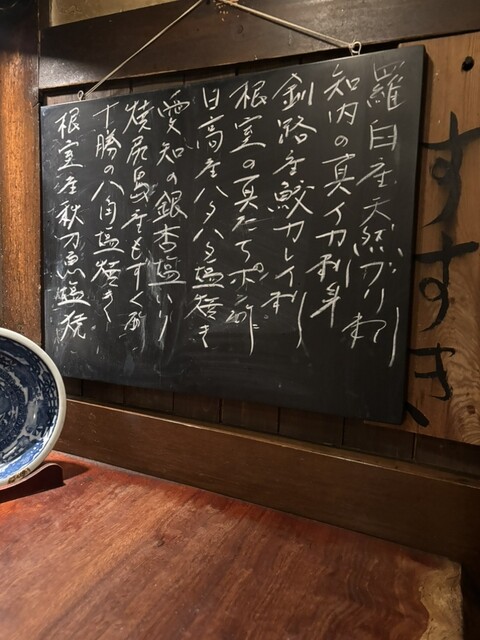 すすき
羅臼産天然ブリ刺
知内の真イカ刺身
釧路産鮫カレイ刺
根室の真たちポン酢
日高産ハタハタ塩焼き
愛知の銀杏塩いり
焼尻島産もずく酢
十勝の八角塩焼き
根室産秋刀魚塩焼